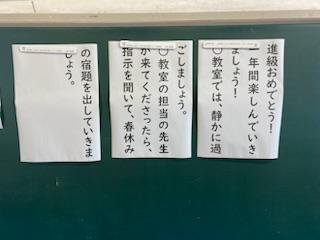 進級おめでとう!
一年間楽しんでいき
ましょう!
○教室では、静かに過
ごしましょう。
○教室の担当の先生
が来てくださったら、
指示を聞いて、春休み
の宿題を出していきま
しょう。